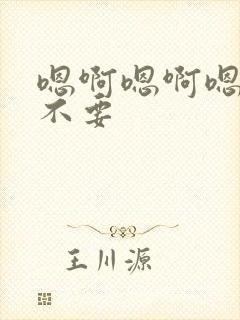 嗯啊嗯啊嗯
不要
王川源